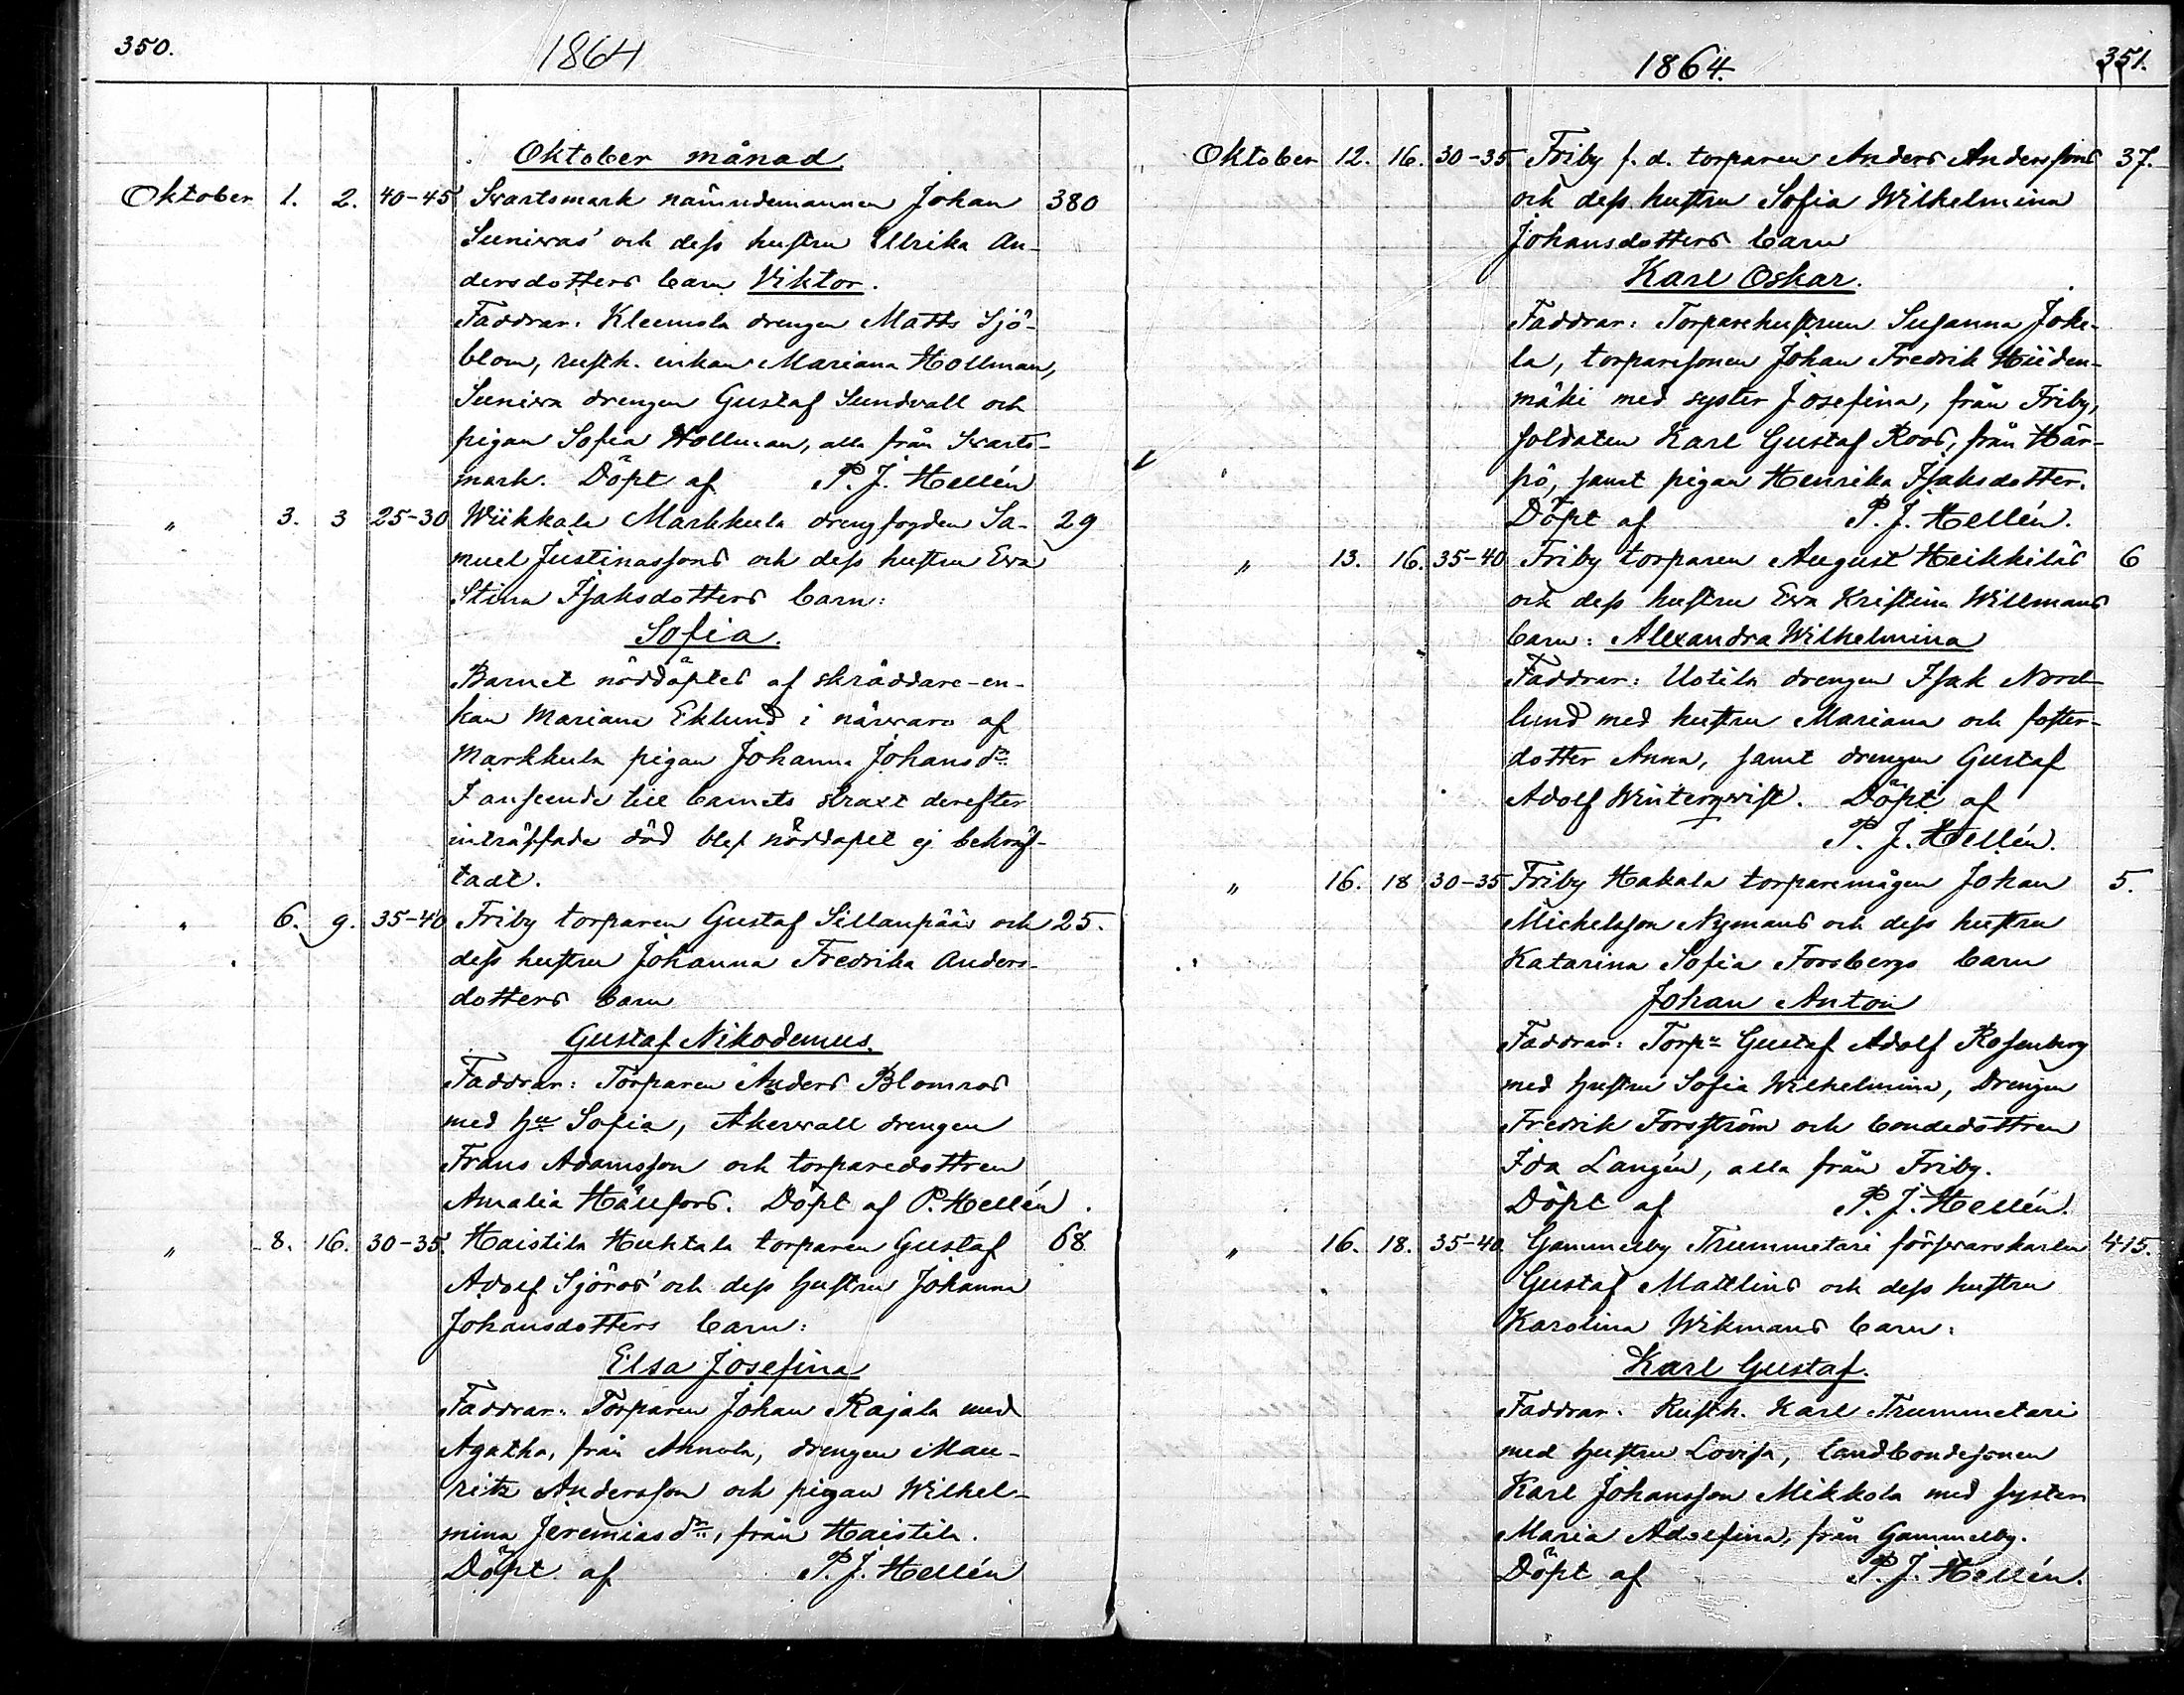 350.
1864
Oktober månad.
Oktober 1. 2. 40-45 Svartsmark nämndemannen Johan 380
Suniwas' och dess hustru Ulrika An-
dersdotters barn Viktor.
Faddrar: Kleemola drengen Matts Sjö-
blom, rusth. enkan Mariana Hollman,
Suniwa drengen Gustaf Sundvall och
pigan Sofia Hollman, alla från Svarts-
mark. Döpt af P. J. Hellén
" 3. 3 25-30 Wiikkala Markkula drengfogden Sa- 29
muel Justinassons och dess hustru Eva
Stina Isaksdotters barn:
Sofia.
Barnet nöddöptes af skräddare-en-
kan Mariana Eklund i närvaro af
Markkula pigan Johanna Johansdr
I anseende till barnets straxt derefter
inträffade död blef nöddopet ej bekräf-
tadt.
" 6. 9. 35-40 Friby torparen Gustaf Sillanpääs och 25.
dess hustru Johanna Fredrika Anders-
dotters barn
Gustaf Nikodemus.
Faddrar: Torparen Anders Blomros
med hu Sofia, Akerwall drengen
Frans Adamsson och torparedottren
Amalia Hällfors. Döpt af P. Hellén.
" 8. 16. 30-35. Haistila Huhtala torparen Gustaf 68
Adolf Sjöros' och dess hustru Johanna
Johansdotters barn:
Elsa Josefina
Faddrar: Torparen Johan Rajala med
Agatha, från Annola, drengen Mau-
ritz Andersson och pigan Wilhel-
mina Jeremiasdr, från Haistila.
Döpt af P. J. Hellén
1864.
351.
Oktober 12. 16. 30-35 Friby f. d. torparen Anders Anderssons 37.
och dess hustru Sofia Wilhelmina
Johansdotters barn
Karl Oskar.
Faddrar: Torparehustrun Susanna Joke-
la, torparesonen Johan Fredrik Hiiden-
mäki med syster Josefina, från Friby,
soldaten Karl Gustaf Roos, från Här-
pö, samt pigan Henrika Isaksdotter.
Döpt af P. J. Hellén.
" 13. 16. 35-40 Friby torparen August Heikkiläs 6
och dess hustru Eva Kristina Willmans
barn: Alexandra Wilhelmina
Faddrar: Uotila drengen Isak Nord-
lund med hustru Mariana och foster-
dotter Anna, samt drengen Gustaf
Adolf Winterqvist. Döpt af
P. J. Hellén.
" 16. 18 30-35 Friby Hakala torparemågen Johan 5.
Michelsson Nymans och dess hustru
Katarina Sofia Forsbergs barn
Johan Anton
Faddrar: Torpn Gustaf Adolf Rosenberg
med hustru Sofia Wilhelmina, Drengen
Fredrik Forsström och bondedottren
Ida Langén, alla från Friby.
Döpt af P. J. Hellén.
" 16. 18. 35-40 Gammelby Trummetari försvarskarlen 415.
Gustaf Mattlins och dess hustru
Karolina Wikmans barn:
Karl Gustaf.
Faddrar: Rusth. Karl Trummetari
med hustru Lovisa, landbondesonen
Karl Johansson Mikkola med syster
Maria Adolfina, från Gammelby.
Döpt af P. J. Hellén.